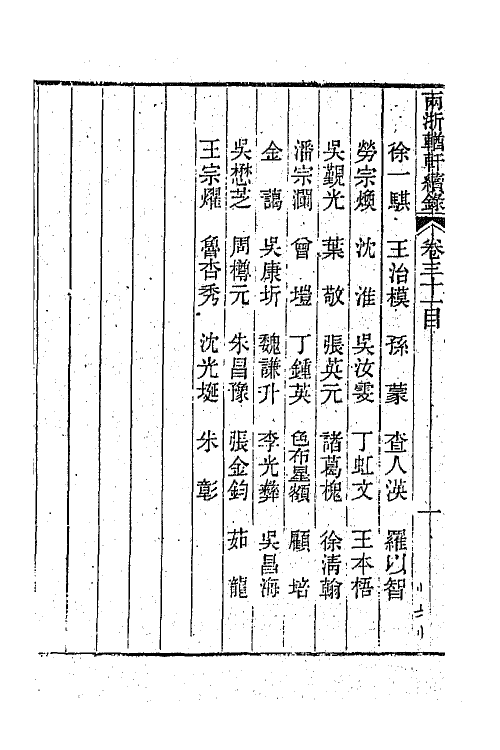 兩浙輶軒續錄 卷三十一目 一
徐一騏 王治模 孫蒙 查人渶 羅以智
勞宗煥 沈淮 吳汝雯 丁虹文 王本梧
吳覲光 葉敬 張英元 諸葛槐 徐淸翰
潘宗瀾 曾塏 丁鍾英 色布星額 顧培
金藹 吳康圻 魏謙升 李光彝 吳昌海
吳懋芝 周樽元 朱昌豫 張金鈞 茹龍
王宗燿 魯杏秀 沈光埏 朱彰